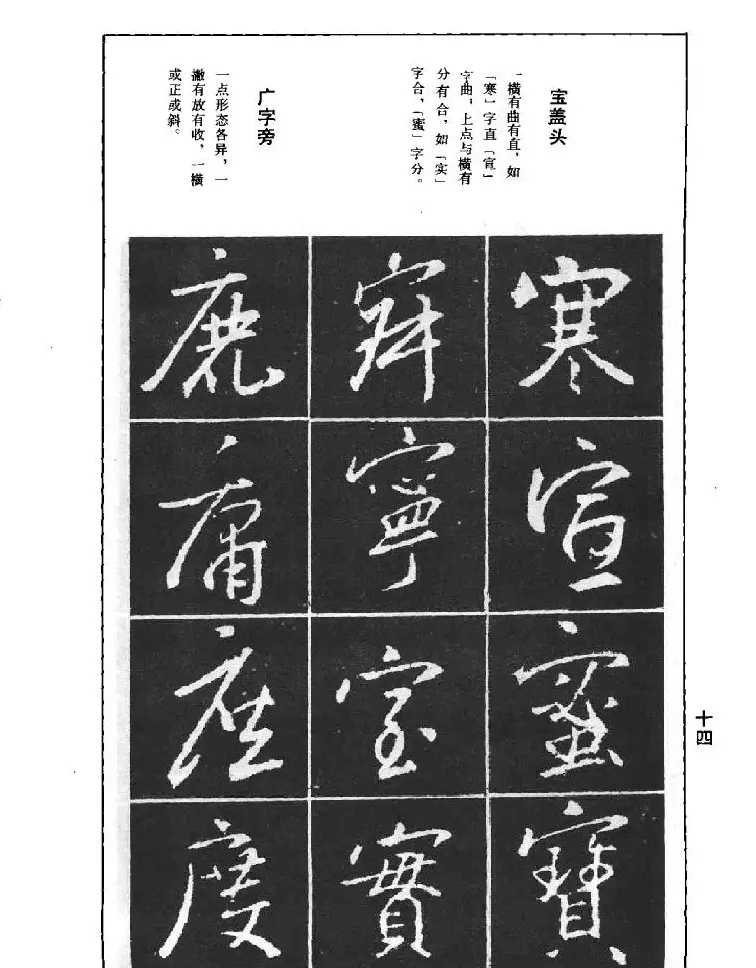 宝盖头
一横有曲有直，如
「寒」字直「宣」
字曲，上点与横有
分有合，如「实」
字合，「蜜」字分。
广字旁
一点形态各异，一
撇有放有收，一横
或正或斜。
寒宣蜜寶
寧室實
鹿庸度
十四